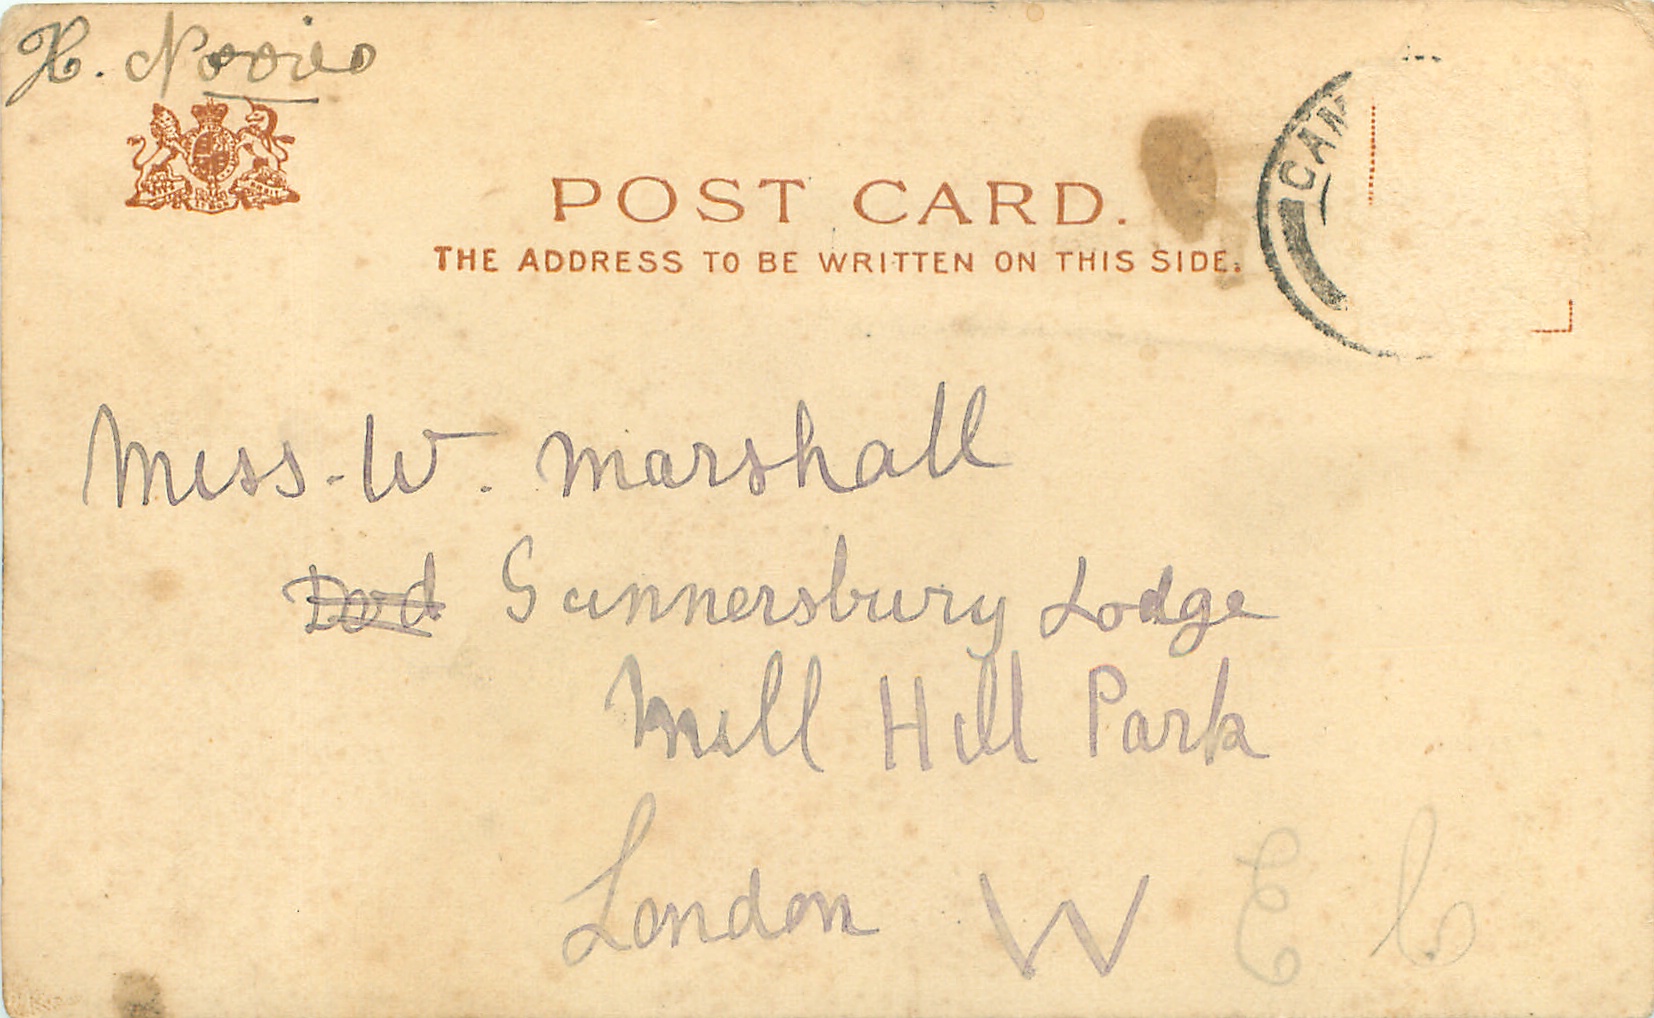 H.
POST CARD.
THE ADDRESS TO BE WRITTEN ON THIS SIDE.
CAM
Miss. W. Marshall
Gunnersbury Lodge
Mill Hill Park
London W E C